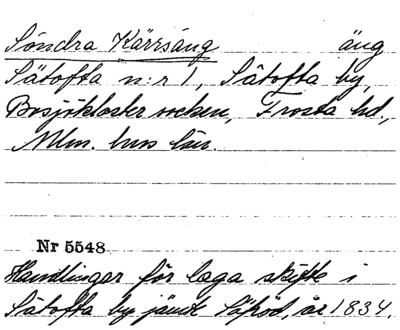 Söndra Kärrsäng äng
Sätofta n:r 1, Sätofta by,
Bosjökloster socken, Frosta hd.,
Mlm. hus län.
Nr 5548
Handlingar för laga skifte i
Sätofta by jämt år 1834.